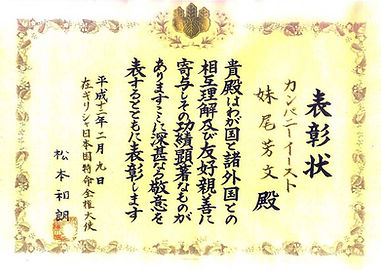 表彰状
カンパニーイースト
妹尾芳文 殿
貴殿はわが国と諸外国との
相互理解及び友好親善に
寄与しその功績顕著なものが
ありますここに深甚なる敬意を
表するとともに表彰します
平成十三年二月九日
在ギリシャ日本国特命全権大使
松本和朗